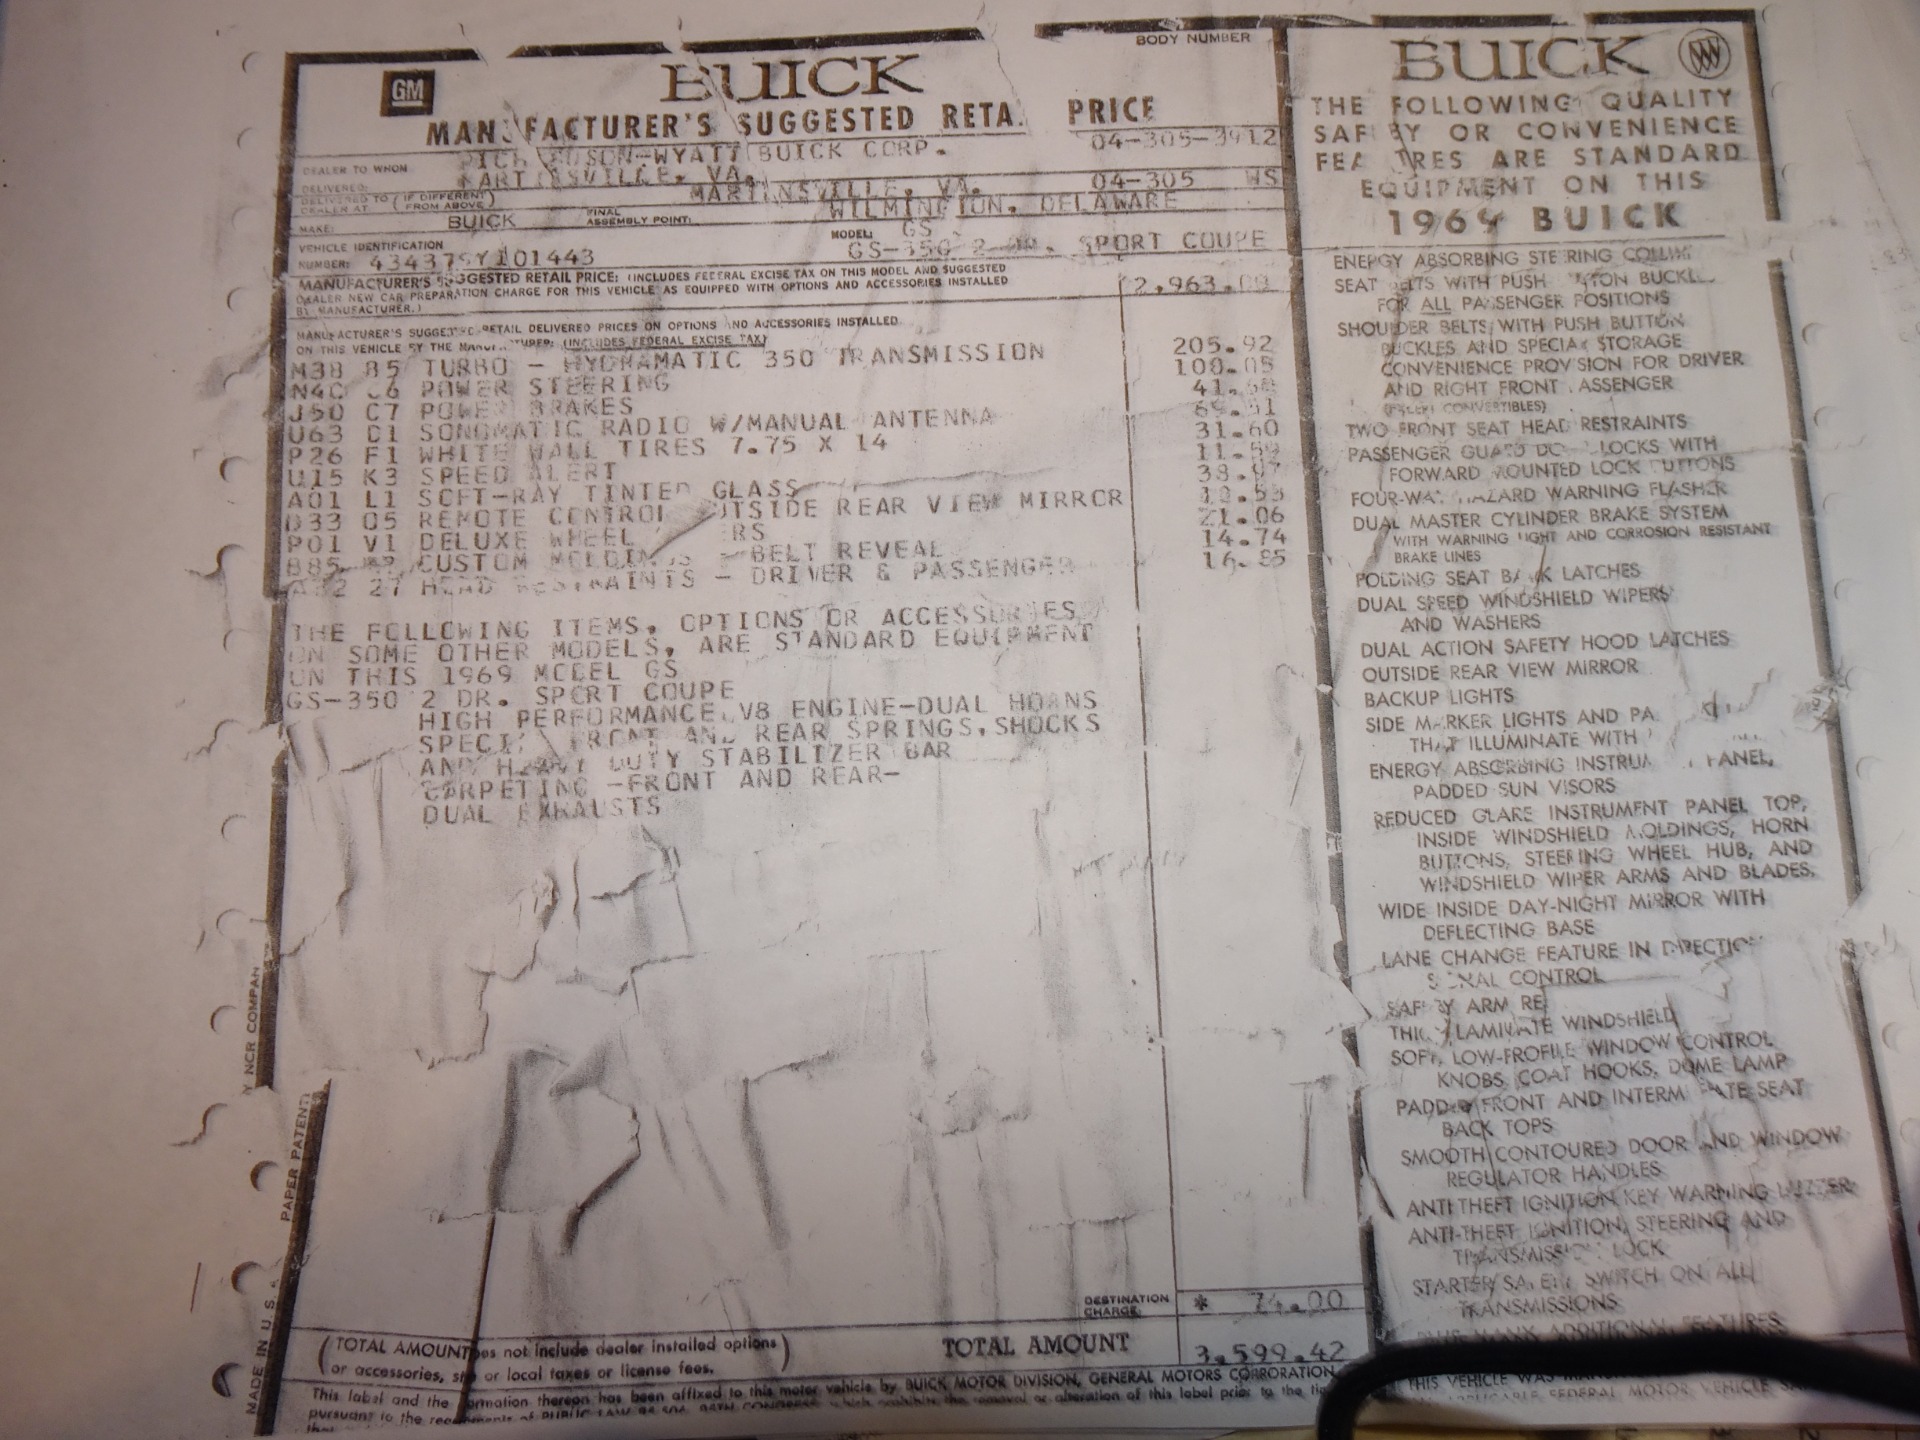 BODY NUMBER
GM
BUICK
MANUFACTURER'S SUGGESTED RETA. PRICE
04-305-3912
DEALER TO WHOM DELIVERED:
-WYATT BUICK CORP.
MARTINSVILLE, VA.
04-305 WS
DELIVERED TO (IF DIFFERENT
DEALER AT FROM ABOVE)
MARTINSVILLE, VA.
MAKE: BUICK
FINAL ASSEMBLY POINT:
WILMINGTON, DELAWARE
VEHICLE IDENTIFICATION
NUMBER: 434379Y101443
MODEL: GS
GS-350 2 DR. SPORT COUPE
MANUFACTURER'S SUGGESTED RETAIL PRICE: (INCLUDES FEDERAL EXCISE TAX ON THIS MODEL AND SUGGESTED
DEALER NEW CAR PREPARATION CHARGE FOR THIS VEHICLE AS EQUIPPED WITH OPTIONS AND ACCESSORIES INSTALLED
BY MANUFACTURER.)
2,963.00
MANUFACTURER'S SUGGESTED RETAIL DELIVERED PRICES ON OPTIONS AND ACCESSORIES INSTALLED
ON THIS VEHICLE BY THE MANUFACTURER: (INCLUDES FEDERAL EXCISE TAX)
M38 B5 TURBO - HYDRAMATIC 350 TRANSMISSION 205.92
N40 C6 POWER STEERING 100.05
J50 C7 POWER BRAKES 41.68
U63 D1 SONOMATIC RADIO W/MANUAL ANTENNA
P26 F1 WHITE WALL TIRES 7.75 X 14 31.60
U15 K3 SPEED ALERT 11.59
A01 L1 SOFT-RAY TINTED GLASS 38.97
D33 O5 REMOTE CONTROL OUTSIDE REAR VIEW MIRROR 10.53
P01 V1 DELUXE WHEEL 21.06
B85 CUSTOM MOLDINGS - BELT REVEAL 14.74
27 HEAD RESTRAINTS - DRIVER & PASSENGER 16.85
THE FOLLOWING ITEMS, OPTIONS OR ACCESSORIES
ON SOME OTHER MODELS, ARE STANDARD EQUIPMENT
ON THIS 1969 MODEL GS
GS-350 2 DR. SPORT COUPE
HIGH PERFORMANCE V8 ENGINE-DUAL HORNS
SPECIAL FRONT AND REAR SPRINGS, SHOCKS
AND HEAVY DUTY STABILIZER BAR
CARPETING -FRONT AND REAR-
DUAL EXHAUSTS
DESTINATION CHARGE: * 74.00
(TOTAL AMOUNT does not include dealer installed options)
or accessories, state or local taxes or license fees.
TOTAL AMOUNT 3,599.42
This label and the information thereon has been affixed to this motor vehicle by BUICK MOTOR DIVISION, GENERAL MOTORS CORPORATION
pursuant to the requirements of PUBLIC LAW 85-506, 85TH CONGRESS which prohibits the removal or alteration of this label prior to the
MADE IN U.S.
PAPER PATENT
Y NCR COMPAN
BUICK
THE FOLLOWING QUALITY
SAFETY OR CONVENIENCE
FEATURES ARE STANDARD
EQUIPMENT ON THIS
1969 BUICK
ENERGY ABSORBING STEERING COLUMN
SEAT BELTS WITH PUSH BUTTON BUCKLES
FOR ALL PASSENGER POSITIONS
SHOULDER BELTS WITH PUSH BUTTON
BUCKLES AND SPECIAL STORAGE
CONVENIENCE PROVISION FOR DRIVER
AND RIGHT FRONT PASSENGER
(EXCEPT CONVERTIBLES)
TWO FRONT SEAT HEAD RESTRAINTS
PASSENGER GUARD DOOR LOCKS WITH
FORWARD MOUNTED LOCK BUTTONS
FOUR-WAY HAZARD WARNING FLASHER
DUAL MASTER CYLINDER BRAKE SYSTEM
WITH WARNING LIGHT AND CORROSION RESISTANT
BRAKE LINES
FOLDING SEAT BACK LATCHES
DUAL SPEED WINDSHIELD WIPERS
AND WASHERS
DUAL ACTION SAFETY HOOD LATCHES
OUTSIDE REAR VIEW MIRROR
BACKUP LIGHTS
SIDE MARKER LIGHTS AND PA
THAT ILLUMINATE WITH
ENERGY ABSORBING INSTRUMENT PANEL,
PADDED SUN VISORS
REDUCED GLARE INSTRUMENT PANEL TOP,
INSIDE WINDSHIELD MOLDINGS, HORN
BUTTONS, STEERING WHEEL HUB, AND
WINDSHIELD WIPER ARMS AND BLADES,
WIDE INSIDE DAY-NIGHT MIRROR WITH
DEFLECTING BASE
LANE CHANGE FEATURE IN DIRECTION
SIGNAL CONTROL
SAFETY ARM RE
THICK LAMINATE WINDSHIELD
SOFT, LOW-PROFILE WINDOW CONTROL
KNOBS, COAT HOOKS, DOME LAMP
PADDED FRONT AND INTERMEDIATE SEAT
BACK TOPS
SMOOTH CONTOURED DOOR AND WINDOW
REGULATOR HANDLES
ANTI THEFT IGNITION KEY WARNING BUZZER
ANTI-THEFT IGNITION, STEERING AND
TRANSMISSION LOCK
STARTER SAFETY SWITCH ON ALL
TRANSMISSIONS
PLUS MANY ADDITIONAL FEATURES
THIS VEHICLE WAS
APPLICABLE FEDERAL MOTOR VEHICLE